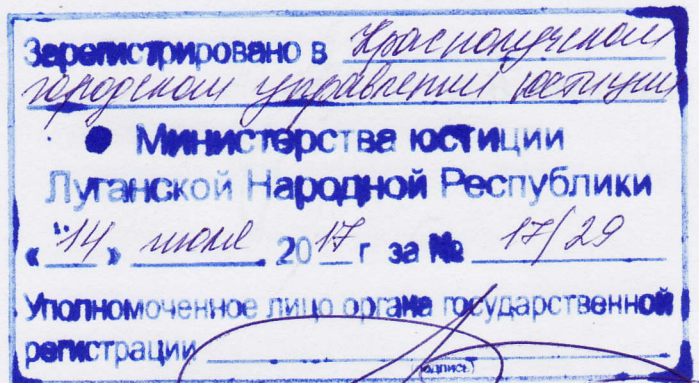 Зарегистрировано в Краснолучском
городском управлении юстиции
Министерства юстиции
Луганской Народной Республики
«14» июля 2017 г за № 17/29
Уполномоченное лицо органа государственной
регистрации
(подпись)